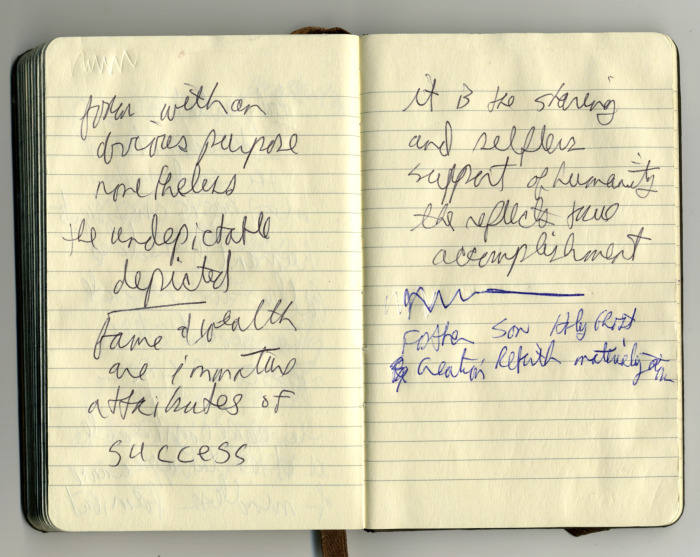 form with an
obvious purpose
nonetheless
the undepictable
depicted
fame & wealth
are immature
attributes of
success
it is the sharing
and selfless
support of humanity
the reflects true
accomplishment
Father Son Holy Ghost
Creation Rebirth